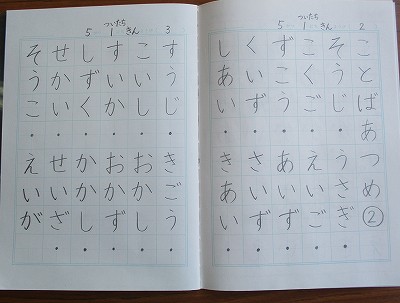 ついたち
5 1 きん 2
ことばあつめ②
そうじ・うさぎ・
こくご・えいご・
ずこう・あいず・
くいず・さいず・
しあい・きあい・
ついたち
5 1 きん 3
すうじ・きごう・
こいし・おかし・
すいか・おかず・
しずく・かかし・
せかい・せいざ・
そうこ・えいが